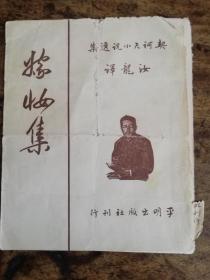 契訶夫小說選集
汝龍譯
嫁妝集
平明出版社刊行